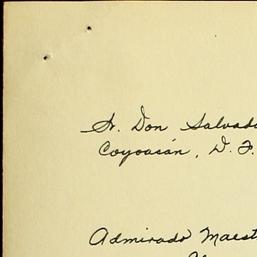 Sr. Don Salvado
Coyoacán, D. F.
Admirado Maest